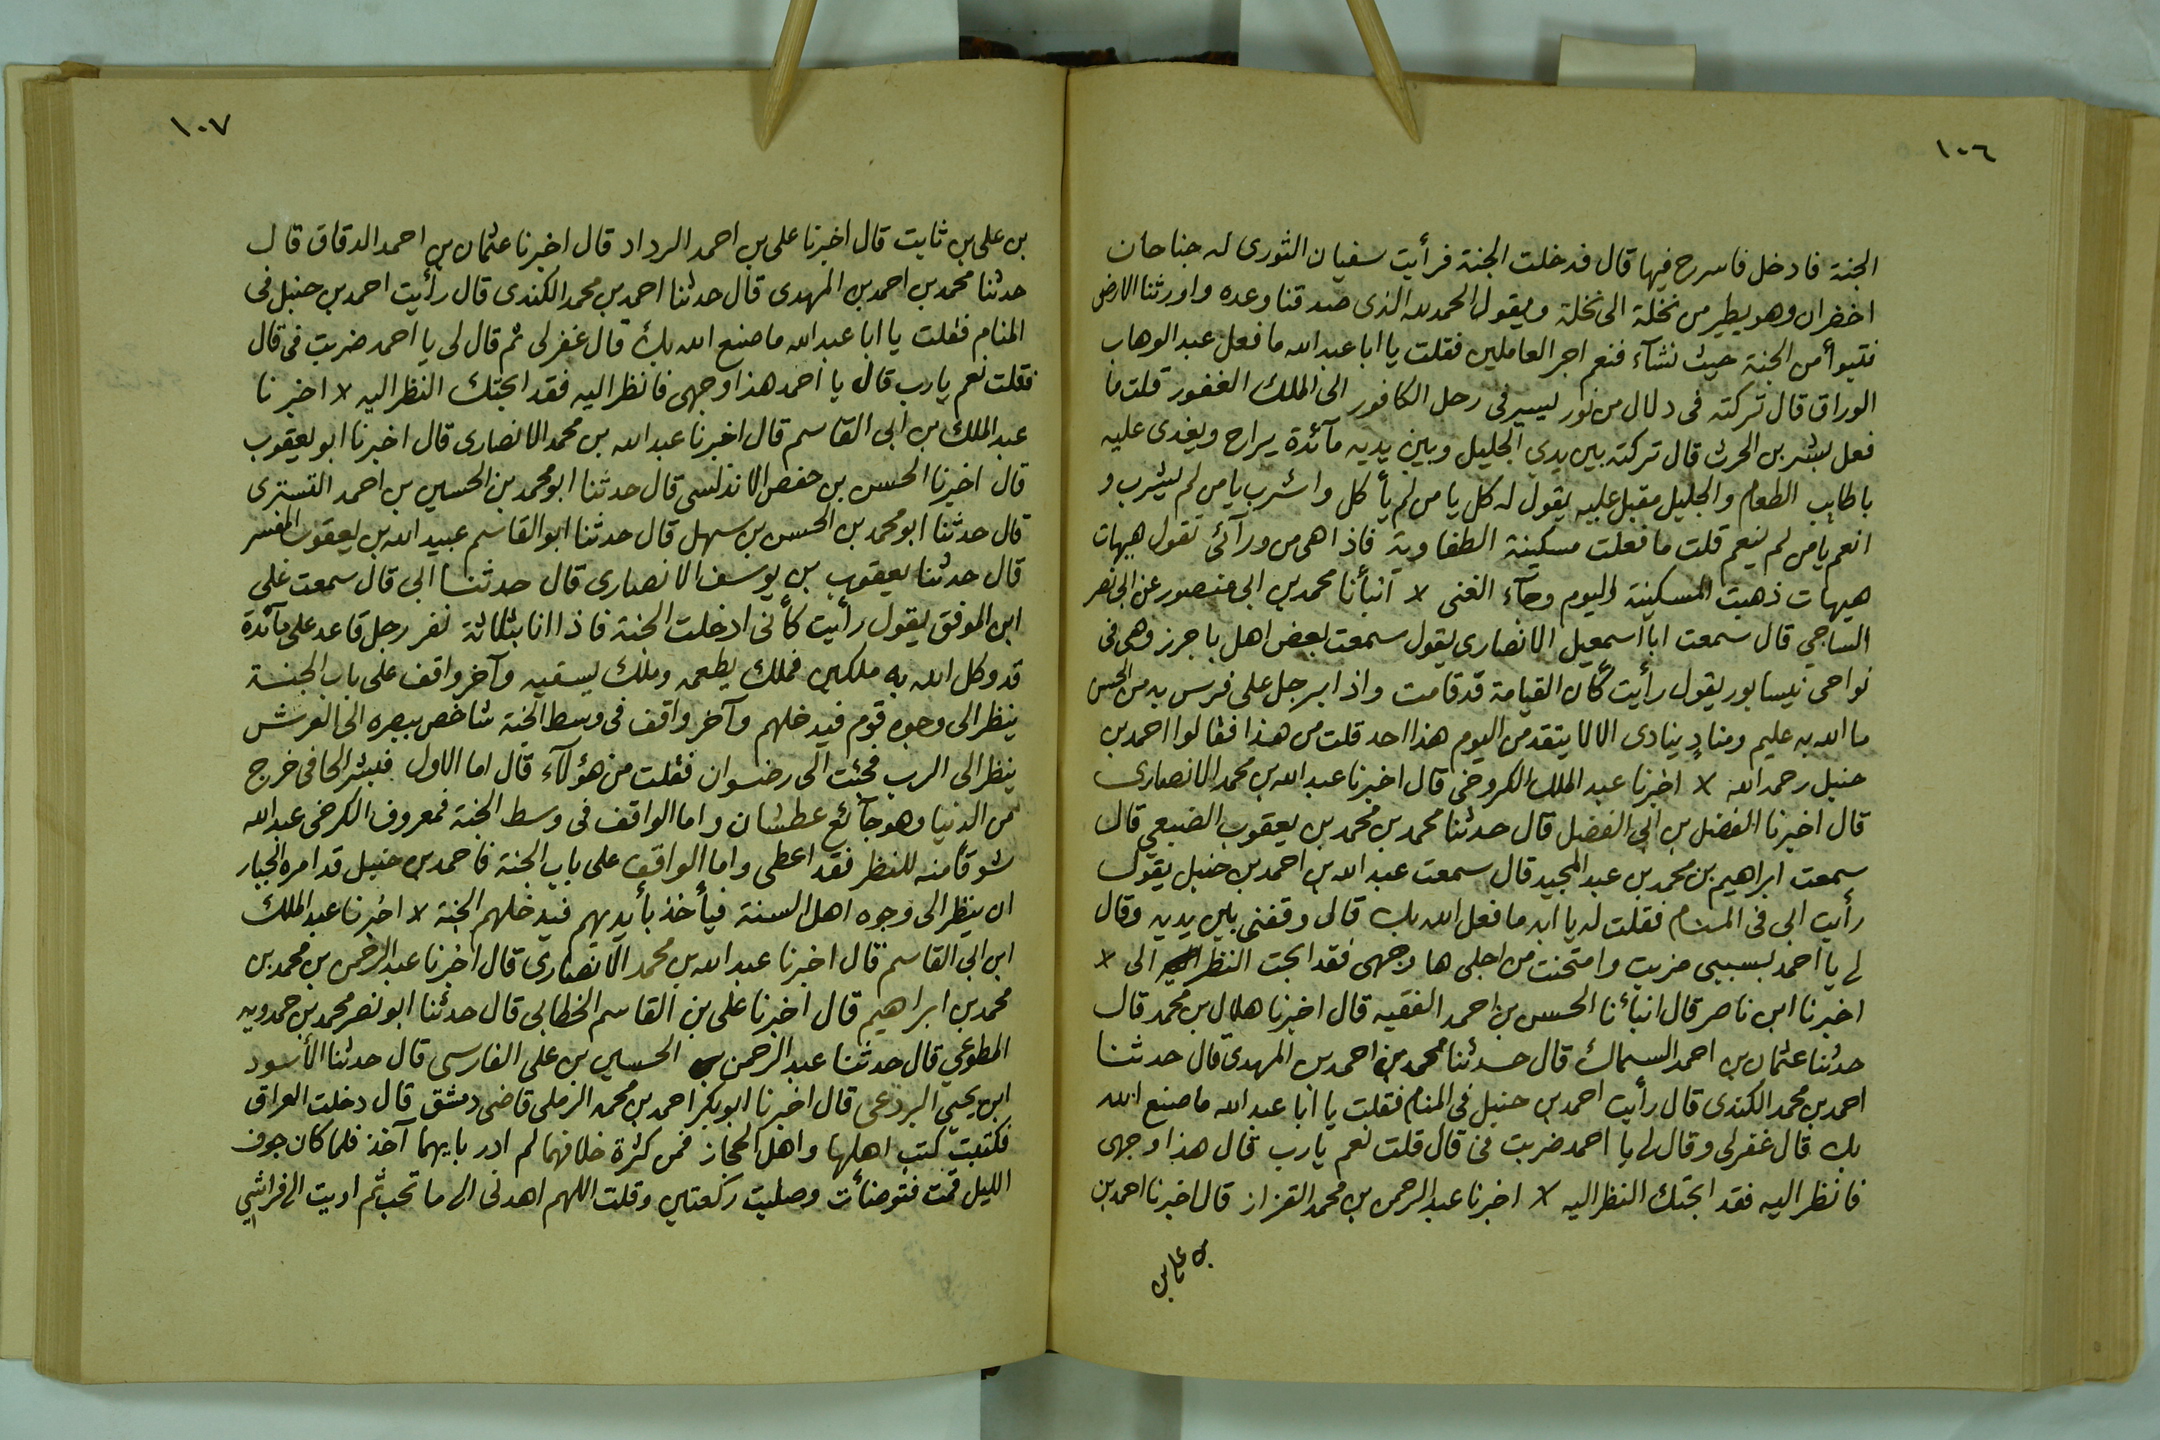 ١٠٦
الجنة فادخل فاسرح فيها قال فدخلت الجنة فرأيت سفيان الثورى له جناحان
اخضران وهو يطير من نخلة الى نخلة ويقول الحمد لله الذى صدقنا وعده واورثنا الارض
نتبوأ من الجنة حيث نشآء فنعم اجر العاملين فقلت يا ابا عبد الله ما فعل عبد الوهاب
الوراق قال تركته فى دلال من نور يسير فى رحل الكافور الى الملك الغفور قلت ما
فعل بشر بن الحرث قال تركته بين يدي الجليل وبين يديه مآئدة يراح ويغدى عليه
باطايب الطعام والجليل مقبل عليه يقول له كل يا من لم يأكل واشرب يا من لم يشرب و
انعم يا من لم ينعم قلت ما فعلت مسكينة الطفاوية فاذا هى من ورآئى تقول هيهات
هيهات ذهبت المسكينة اليوم وجآء الغنى ٪ انبأنا محمد بن ابى منصور عن ابى نصر
الساجي قال سمعت ابا اسمعيل الانصارى يقول سمعت بعض اهل باخرز وهى فى
نواحى نيسابور يقول رأيت كأن القيامة قد قامت واذا برجل على فرس به من الحسن
ما الله به عليم ومنادٍ ينادى الا لا يتقدمن اليوم هذا احد قلت من هذا فقالوا احمد بن
حنبل رحمه الله ٪ اخبرنا عبد الملك الكروخى قال اخبرنا عبد الله بن محمد الانصارى
قال اخبرنا الفضل بن ابى الفضل قال حدثنا محمد بن محمد بن يعقوب الضبعي قال
سمعت ابراهيم بن محمد بن عبد المجيد قال سمعت عبد الله بن احمد بن حنبل يقول
رأيت ابى فى المنام فقلت له يا ابه ما فعل الله بك قال وقفنى بين يديه وقال
لى يا احمد بسببى ضربت وامتحنت من اجلى ها وجهى فقد ابحت النظر الى ٪
اخبرنا ابن ناصر قال انبأنا الحسن بن احمد الفقيه قال اخبرنا هلال بن محمد قال
حدثنا عثمان بن احمد السماك قال حدثنا محمد بن احمد بن المهدى قال حدثنا
احمد بن محمد الكندى قال رأيت احمد بن حنبل فى المنام فقلت يا ابا عبد الله ما صنع الله
بك قال غفر لى وقال لى يا احمد ضربت فى قال قلت نعم يارب قال هذا وجهى
فانظر اليه فقد ابحتك النظر اليه ٪ اخبرنا عبد الرحمن بن محمد القزاز قال اخبرنا احمد بن
بن على بن
١٠٧
بن على بن ثابت قال اخبرنا على بن احمد الرداد قال اخبرنا عثمان بن احمد الدقاق قال
حدثنا محمد بن احمد بن المهدى قال حدثنا احمد بن محمد الكندى قال رأيت احمد بن حنبل فى
المنام فقلت يا ابا عبد الله ما صنع الله بك قال غفر لى ثم قال لى يا احمد ضربت فى قال
فقلت نعم يارب قال يا احمد هذا وجهى فانظر اليه فقد ابحتك النظر اليه ٪ اخبرنا
عبد الملك بن ابى القاسم قال اخبرنا عبد الله بن محمد الانصارى قال اخبرنا ابو يعقوب
قال اخبرنا الحسن بن حفص الاندلسى قال حدثنا ابو محمد بن الحسين بن احمد التسترى
قال حدثنا ابو محمد بن الحسن بن سهل قال حدثنا ابو القاسم عبيد الله بن يعقوب المفسر
قال حدثنا يعقوب بن يوسف الانصارى قال حدثنا ابى قال سمعت على
ابن الموفق يقول رأيت كأنى ادخلت الجنة فاذا انا بثلاثة نفر رجل قاعد على مآئدة
قد وكل الله به ملكين فملك يطعمه وملك يسقيه وآخر واقف على باب الجنة
ينظر الى وجوه قوم فيدخلهم وآخر واقف فى وسط الجنة شاخص ببصره الى العرش
ينظر الى الرب فجئت الى رضوان فقلت من هؤلآء قال اما الاول فبشر الحافى خرج
من الدنيا وهو جآئع عطشان واما الواقف فى وسط الجنة فمعروف الكرخى عبد الله
شوقا منه للنظر فقد اعطى واما الواقف على باب الجنة فاحمد بن حنبل قد امره الجبار
ان ينظر الى وجوه اهل السنة فيأخذ بأيديهم فيدخلهم الجنة ٪ اخبرنا عبد الملك
ابن ابى القاسم قال اخبرنا عبد الله بن محمد الانصارى قال اخبرنا عبد الرحمن بن محمد بن
محمد بن ابراهيم قال اخبرنا على بن القاسم الخطابى قال حدثنا ابو نصر محمد بن حمدويه
المطوعي قال حدثنا عبد الرحمن الحسين بن على الفارسى قال حدثنا الأسود
ابن يحيى البردعى قال اخبرنا ابو بكر احمد بن محمد الرملى قاضى دمشق قال دخلت العراق
فكتبت كتب اهلها واهل الحجاز فمن كثرة خلافهما لم ادر بايهما آخذ فلما كان جوف
الليل قمت فتوضأت وصليت ركعتين وقلت اللهم اهدنى الى ما تحب ثم اويت الى فراشي